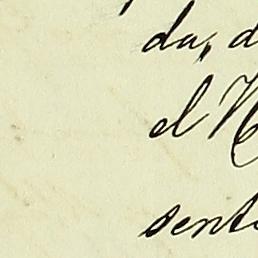 da, d
el
sent